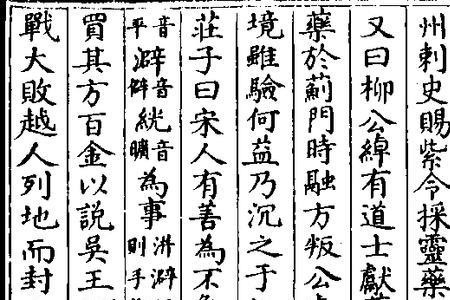 州刺史賜紫令採靈藥
又曰柳公綽有道士獻
藥於薊門時融方叛公
境雖驗何益乃沉之于
莊子曰宋人有善為不
音平澼音僻絖音曠為事洴澼則手
買其方百金以說吳王
戰大敗越人列地而封